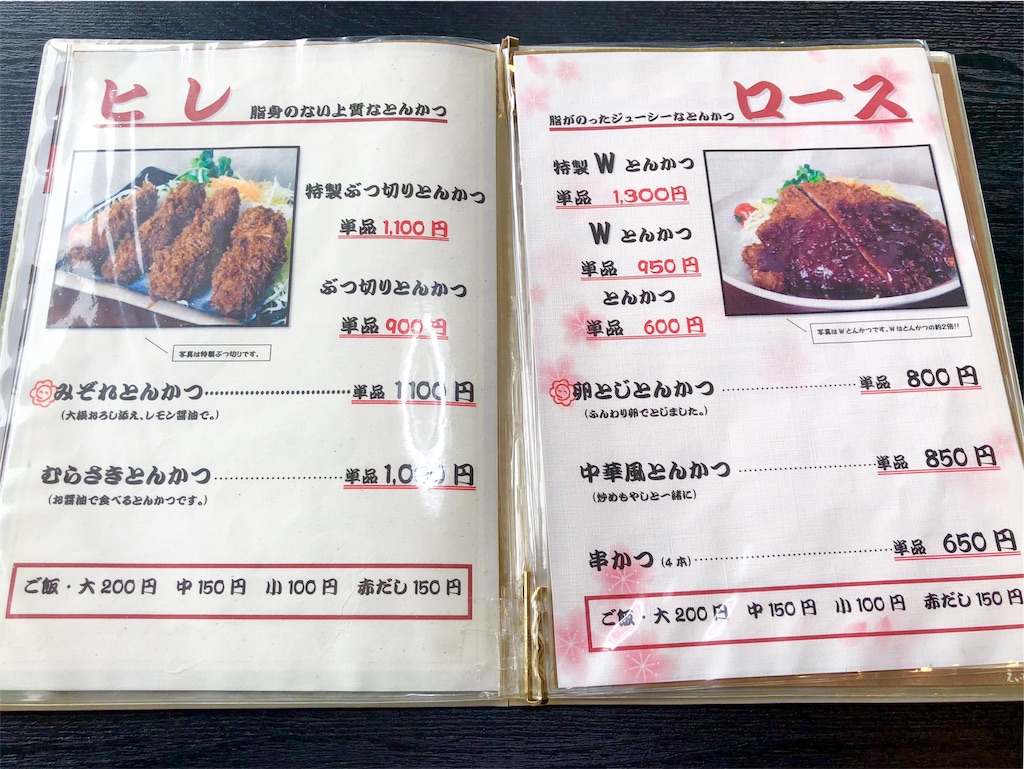 ヒレ 脂身のない上質なとんかつ
特製ぶつ切りとんかつ
単品 1,100 円
ぶつ切りとんかつ
単品 900 円
写真は特製ぶつ切りです。
みぞれとんかつ 単品 1,100 円
(大根おろし添え、レモン醤油で。)
むらさきとんかつ 単品
(お醤油で食べるとんかつです。)
ご飯・大 200 円 中 150 円 小 100 円 赤だし 150 円
脂がのったジューシーなとんかつ ロース
特製 W とんかつ
単品 1,300円
W とんかつ
単品 950 円
とんかつ
単品 600 円
写真は W とんかつです。W はとんかつの約2倍!!
卵とじとんかつ 単品 800 円
(ふんわり卵でとじました。)
中華風とんかつ 単品 850 円
(炒めもやしと一緒に)
串かつ (4 本) 単品 650 円
ご飯・大 200 円 中 150 円 小 100 円 赤だし 150 円